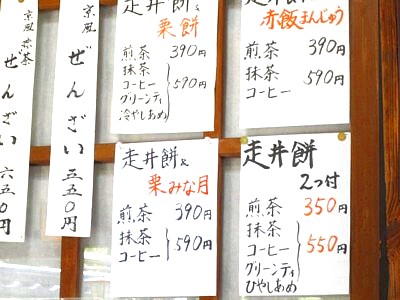 京風抹茶
ぜんざい
六五〇
京風
ぜんざい
五五〇円
走井餅&
栗餅
煎茶 390円
抹茶
コーヒー
グリーンティ
冷やしあめ
590円
赤飯まんじゅう
煎茶 390円
抹茶
コーヒー
590円
走井餅&
栗みな月
煎茶 390円
抹茶
コーヒー
590円
走井餅
2つ付
煎茶 350円
抹茶
コーヒー
グリーンティ
ひやしあめ
550円